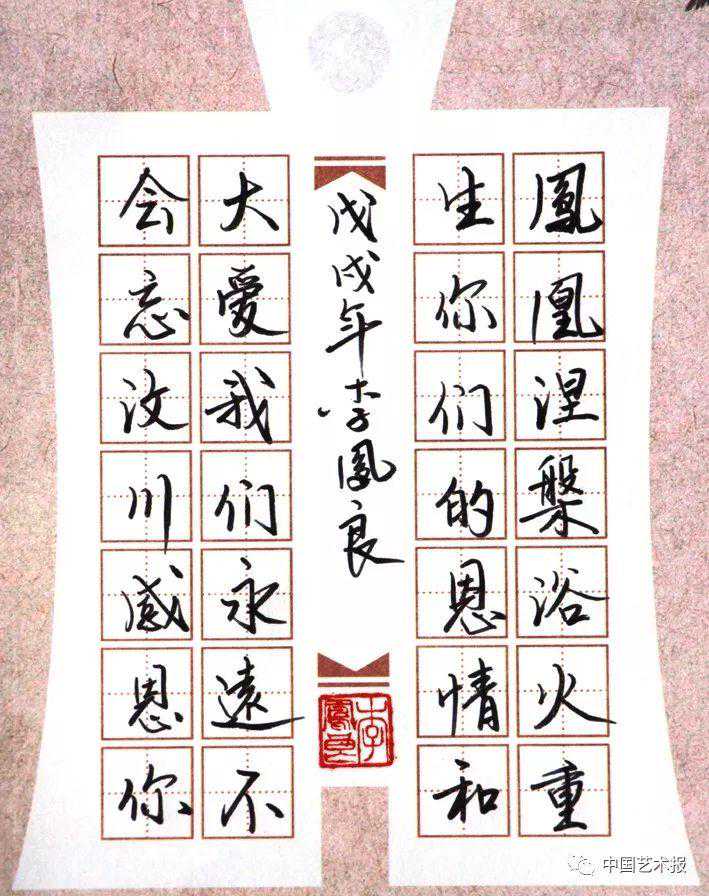 鳳凰涅槃浴火重
生你们的恩情和
戊戌年李鳳良
李鳳良
大愛我们永遠不
会忘汶川感恩你
中国艺术报